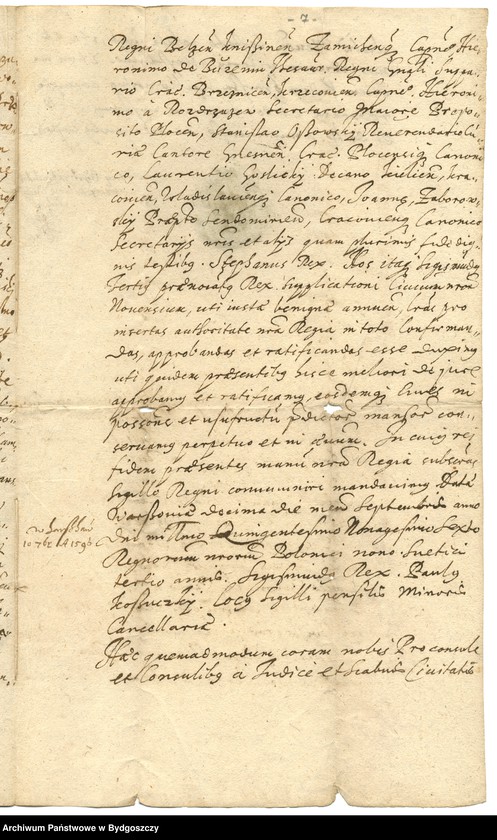 - 7 -
Regni Belzen Knissinen Zamechen Capneo Hie-
ronimo de Buzenin Thesaur. Regni Gnāli
rio Crac. Brzeznicen, Krzeczoven. Capneo, Hieroni-
mo à Rozdrazew Secretario Maiore Propo-
sito Plocen, Stanislao Ossowsky Referendario Cu-
riæ Cantore Gnesnen, Crac. Plocensiq Canoni-
co, Laurentio Goslicky Decano Kielcen, Kra-
covien, Uladislavien Canonico, Joanne Zaborow-
sky Præpto Sendomirien, Cracovien Canonico
Secretarijs nris et alijs quam plurimis fide dig-
nis testibq. Stephanus Rex. Nos itaq Sigismūdq
Tertiq prænoiatq Rex. Supplicationi Civium nrōr
Novensium, uti iusta benigne annuen, lras præ
insertas authoritate nrā Regia in toto confirman-
das, approbandas et ratificandas esse duximq
uti quidem præsentibq hisce meliori de iure
approbamq et ratificamq, eosdemq Cives in
possione et usufructu prædictor mansor con-
servamq perpetuo et in ævum. In cuiq rei
fidem præsentes manu nrā Regia subscrās
Sigillo Regni communiri mandavimq. Data
Varssoviæ decima die men Septembris anno
Dni millmo Quingentesimo Nonagesimo Sexto
Regnorum nrōrum Poloniæ nono Suetici
tertio annis. Sigismundq Rex. Paulq
Locq Sigilli pensilis Minoris
Cancellariæ.
Hæc quemadmodum coram nobis Proconsule
et Consulibq à Judice et Scabinis Civitatis
w Warszawie
10 7br 1596
Archiwum Państwowe w Bydgoszczy